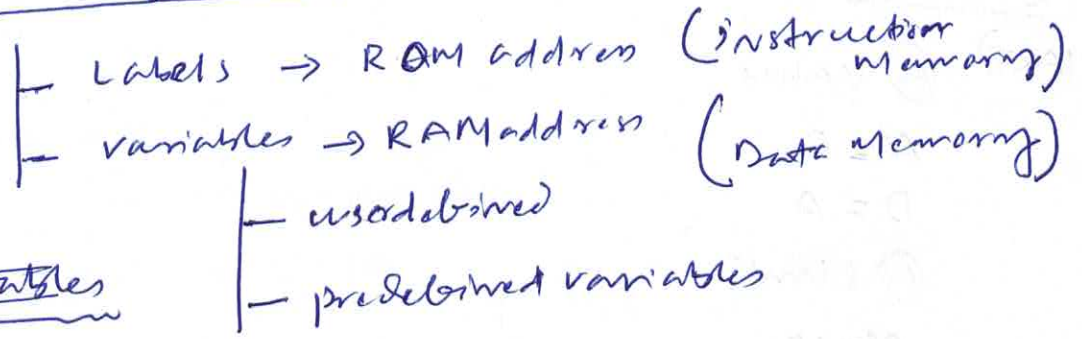 Labels → ROM address (instruction Memory)
variables → RAM address (Data Memory)
userdefined
predefined variables